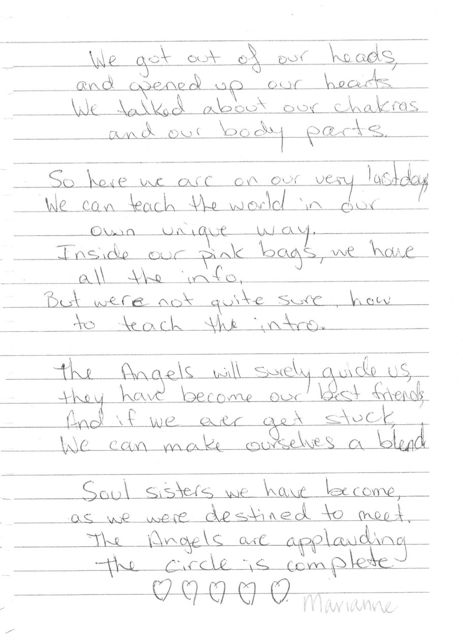 We got out of our heads,
and opened up our hearts
We talked about our chakras
and our body parts.
So here we are on our very last day
We can teach the world in our
own unique way.
Inside our pink bags, we have
all the info,
But were not quite sure, how
to teach the intro.
The Angels will surely guide us,
they have become our best friends,
And if we ever get stuck,
We can make ourselves a blend
Soul sisters we have become,
as we were destined to meet.
The Angels are applauding
The circle is complete
♡ ♡ ♡ ♡ ♡
Marianne